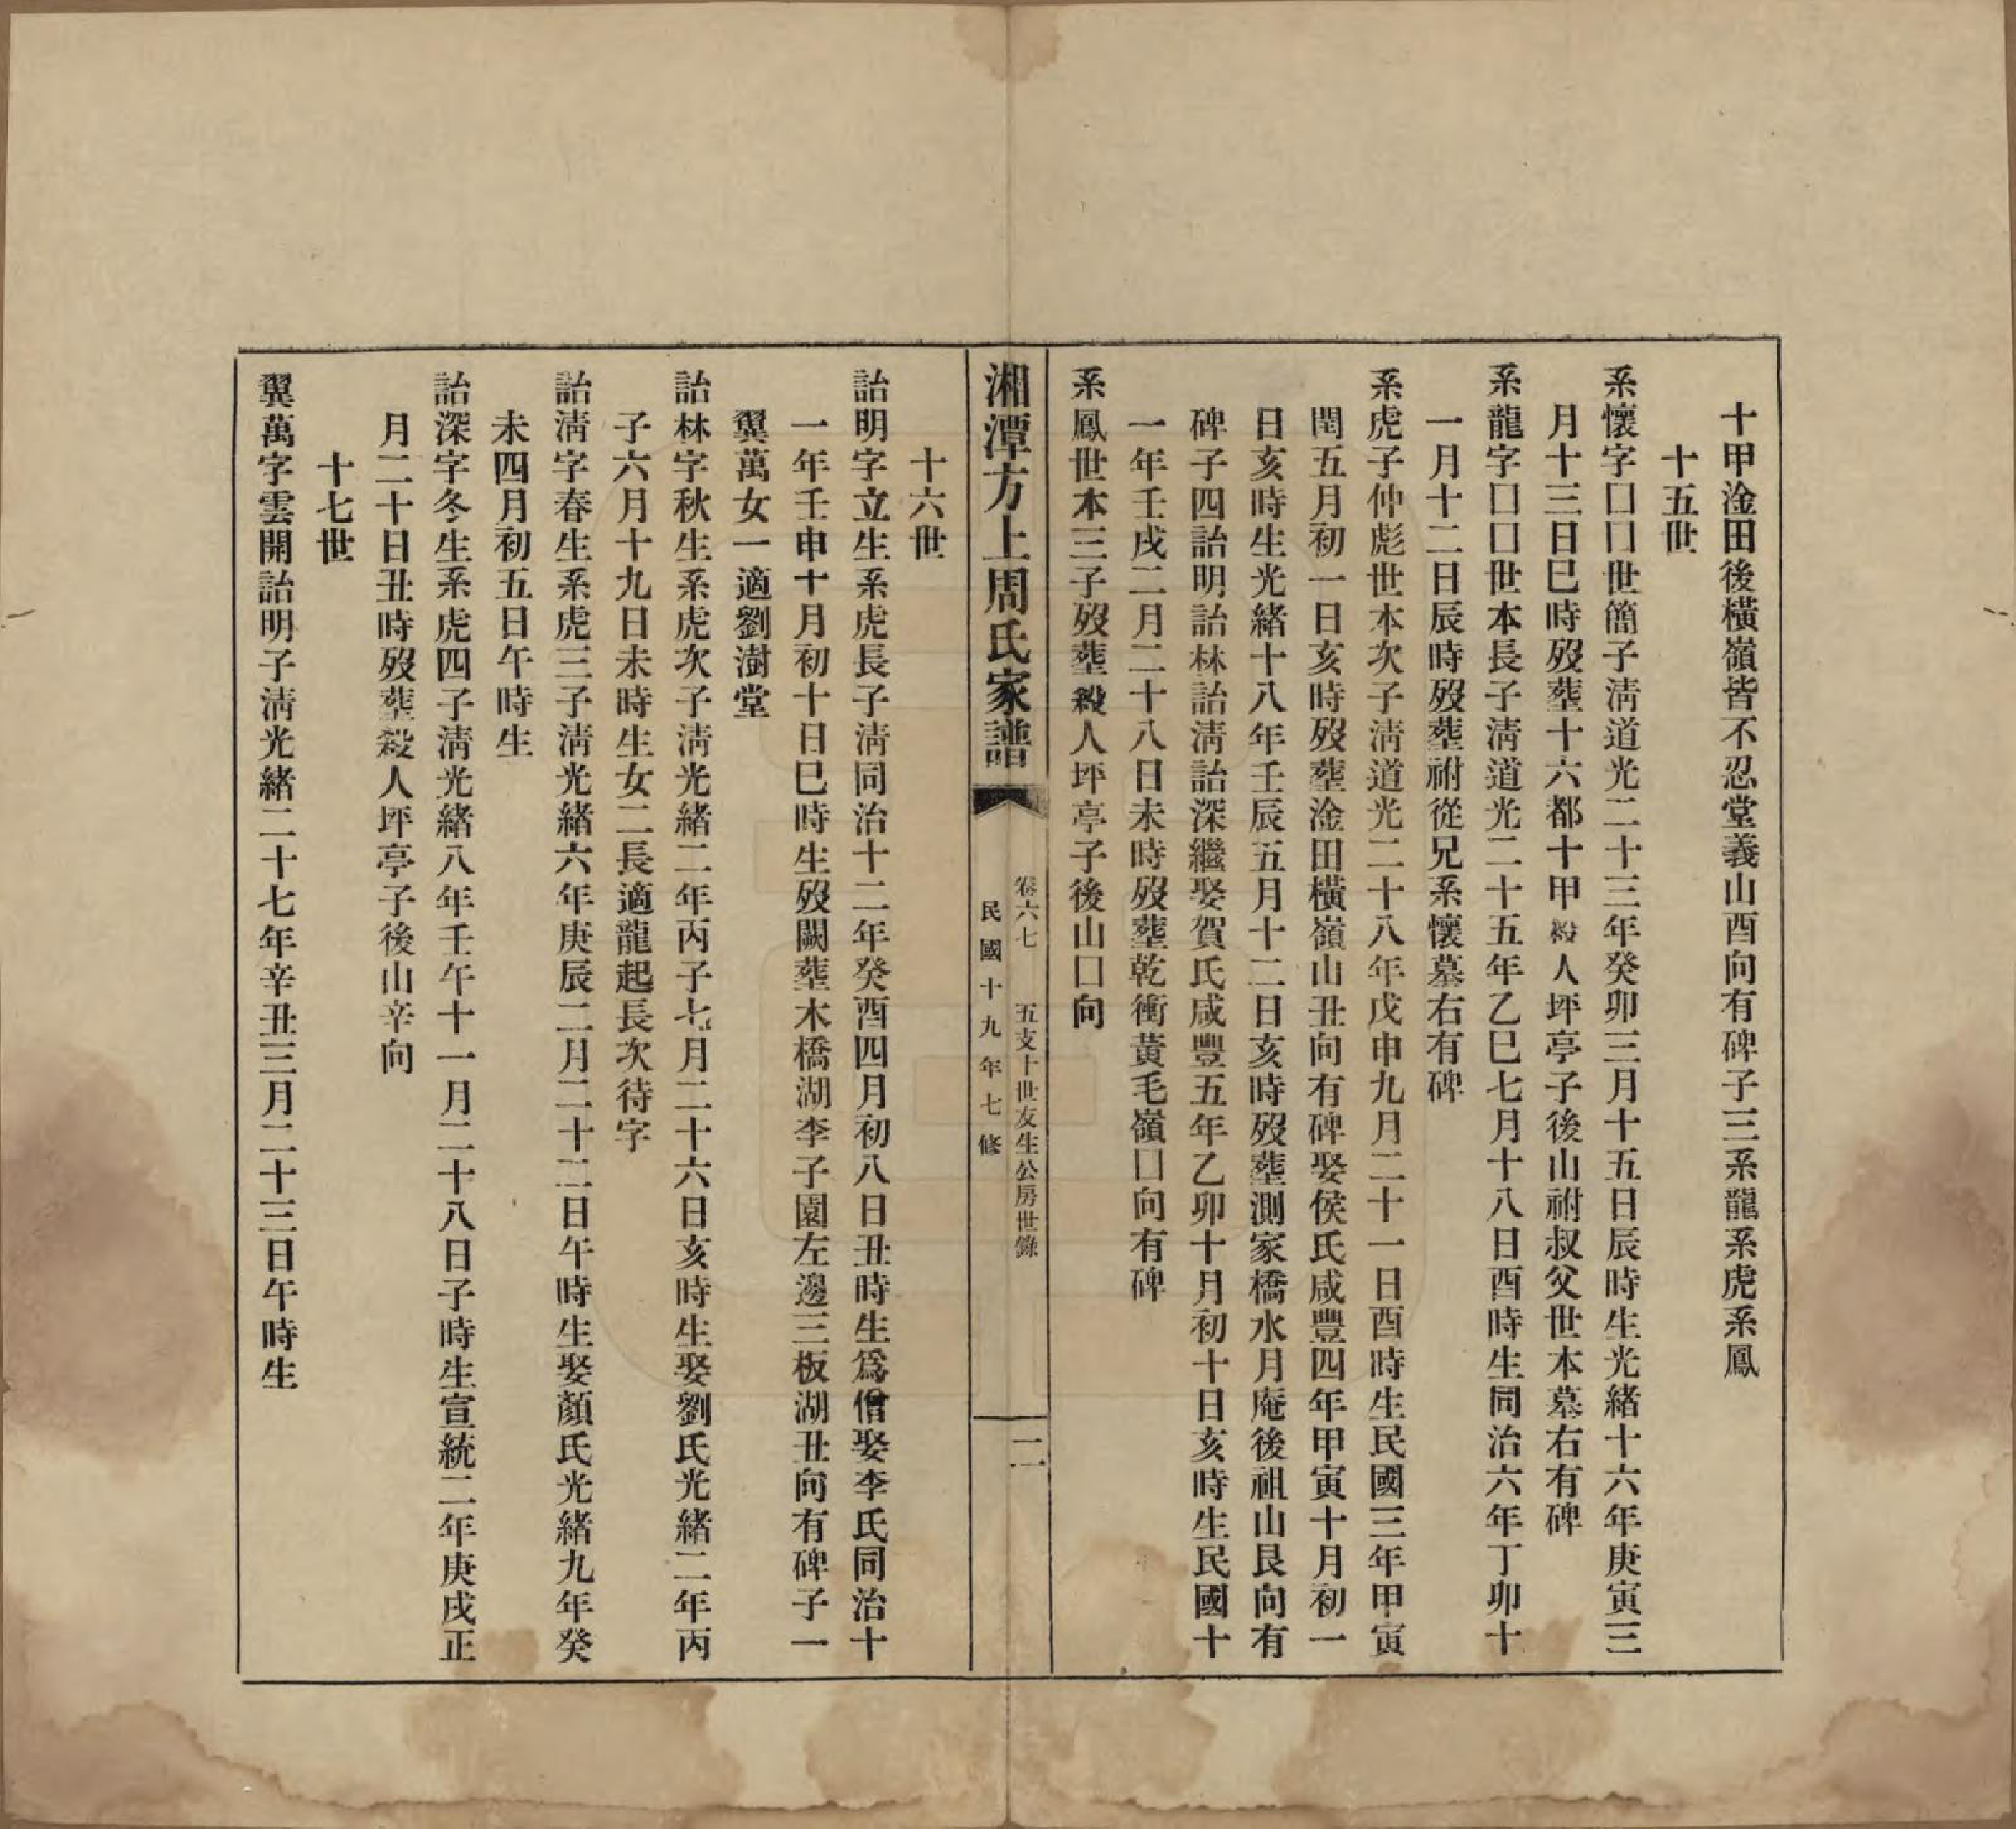 十甲淦田後橫嶺皆不忍堂義山酉向有碑子三系龍系虎系鳳
十五世
系懷字囗囗世簡子淸道光二十三年癸卯三月十五日辰時生光緒十六年庚寅三
月十三日巳時歿葬十六都十甲殺人坪亭子後山祔叔父世本墓右有碑
系龍字囗囗世本長子淸道光二十五年乙巳七月十八日酉時生同治六年丁卯十
一月十二日辰時歿葬祔從兄系懷墓右有碑
系虎子仲彪世本次子淸道光二十八年戊申九月二十一日酉時生民國三年甲寅
閏五月初一日亥時歿葬淦田橫嶺山丑向有碑娶侯氏咸豐四年甲寅十月初一
日亥時生光緒十八年壬辰五月十二日亥時歿葬測家橋水月庵後祖山艮向有
碑子四詒明詒林詒淸詒深繼娶賀氏咸豐五年乙卯十月初十日亥時生民國十
一年壬戌二月二十八日未時歿葬乾衝黃毛嶺囗向有碑
系鳳世本三子歿葬殺人坪亭子後山囗向
湘潭方上周氏家譜
卷六七 五支十世友生公房世錄
民國十九年七修
二
十六世
詒明字立生系虎長子淸同治十二年癸酉四月初八日丑時生爲僧娶李氏同治十
一年壬申十月初十日巳時生歿闕葬木橋湖李子園左邊三板湖丑向有碑子一
翼萬女一適劉澍堂
詒林字秋生系虎次子淸光緒二年丙子七月二十六日亥時生娶劉氏光緒二年丙
子六月十九日未時生女二長適龍起長次待字
詒淸字春生系虎三子淸光緒六年庚辰二月二十二日午時生娶顏氏光緒九年癸
未四月初五日午時生
詒深字冬生系虎四子淸光緒八年壬午十一月二十八日子時生宣統二年庚戌正
月二十日丑時歿葬殺人坪亭子後山辛向
十七世
翼萬字雲開詒明子淸光緒二十七年辛丑三月二十三日午時生